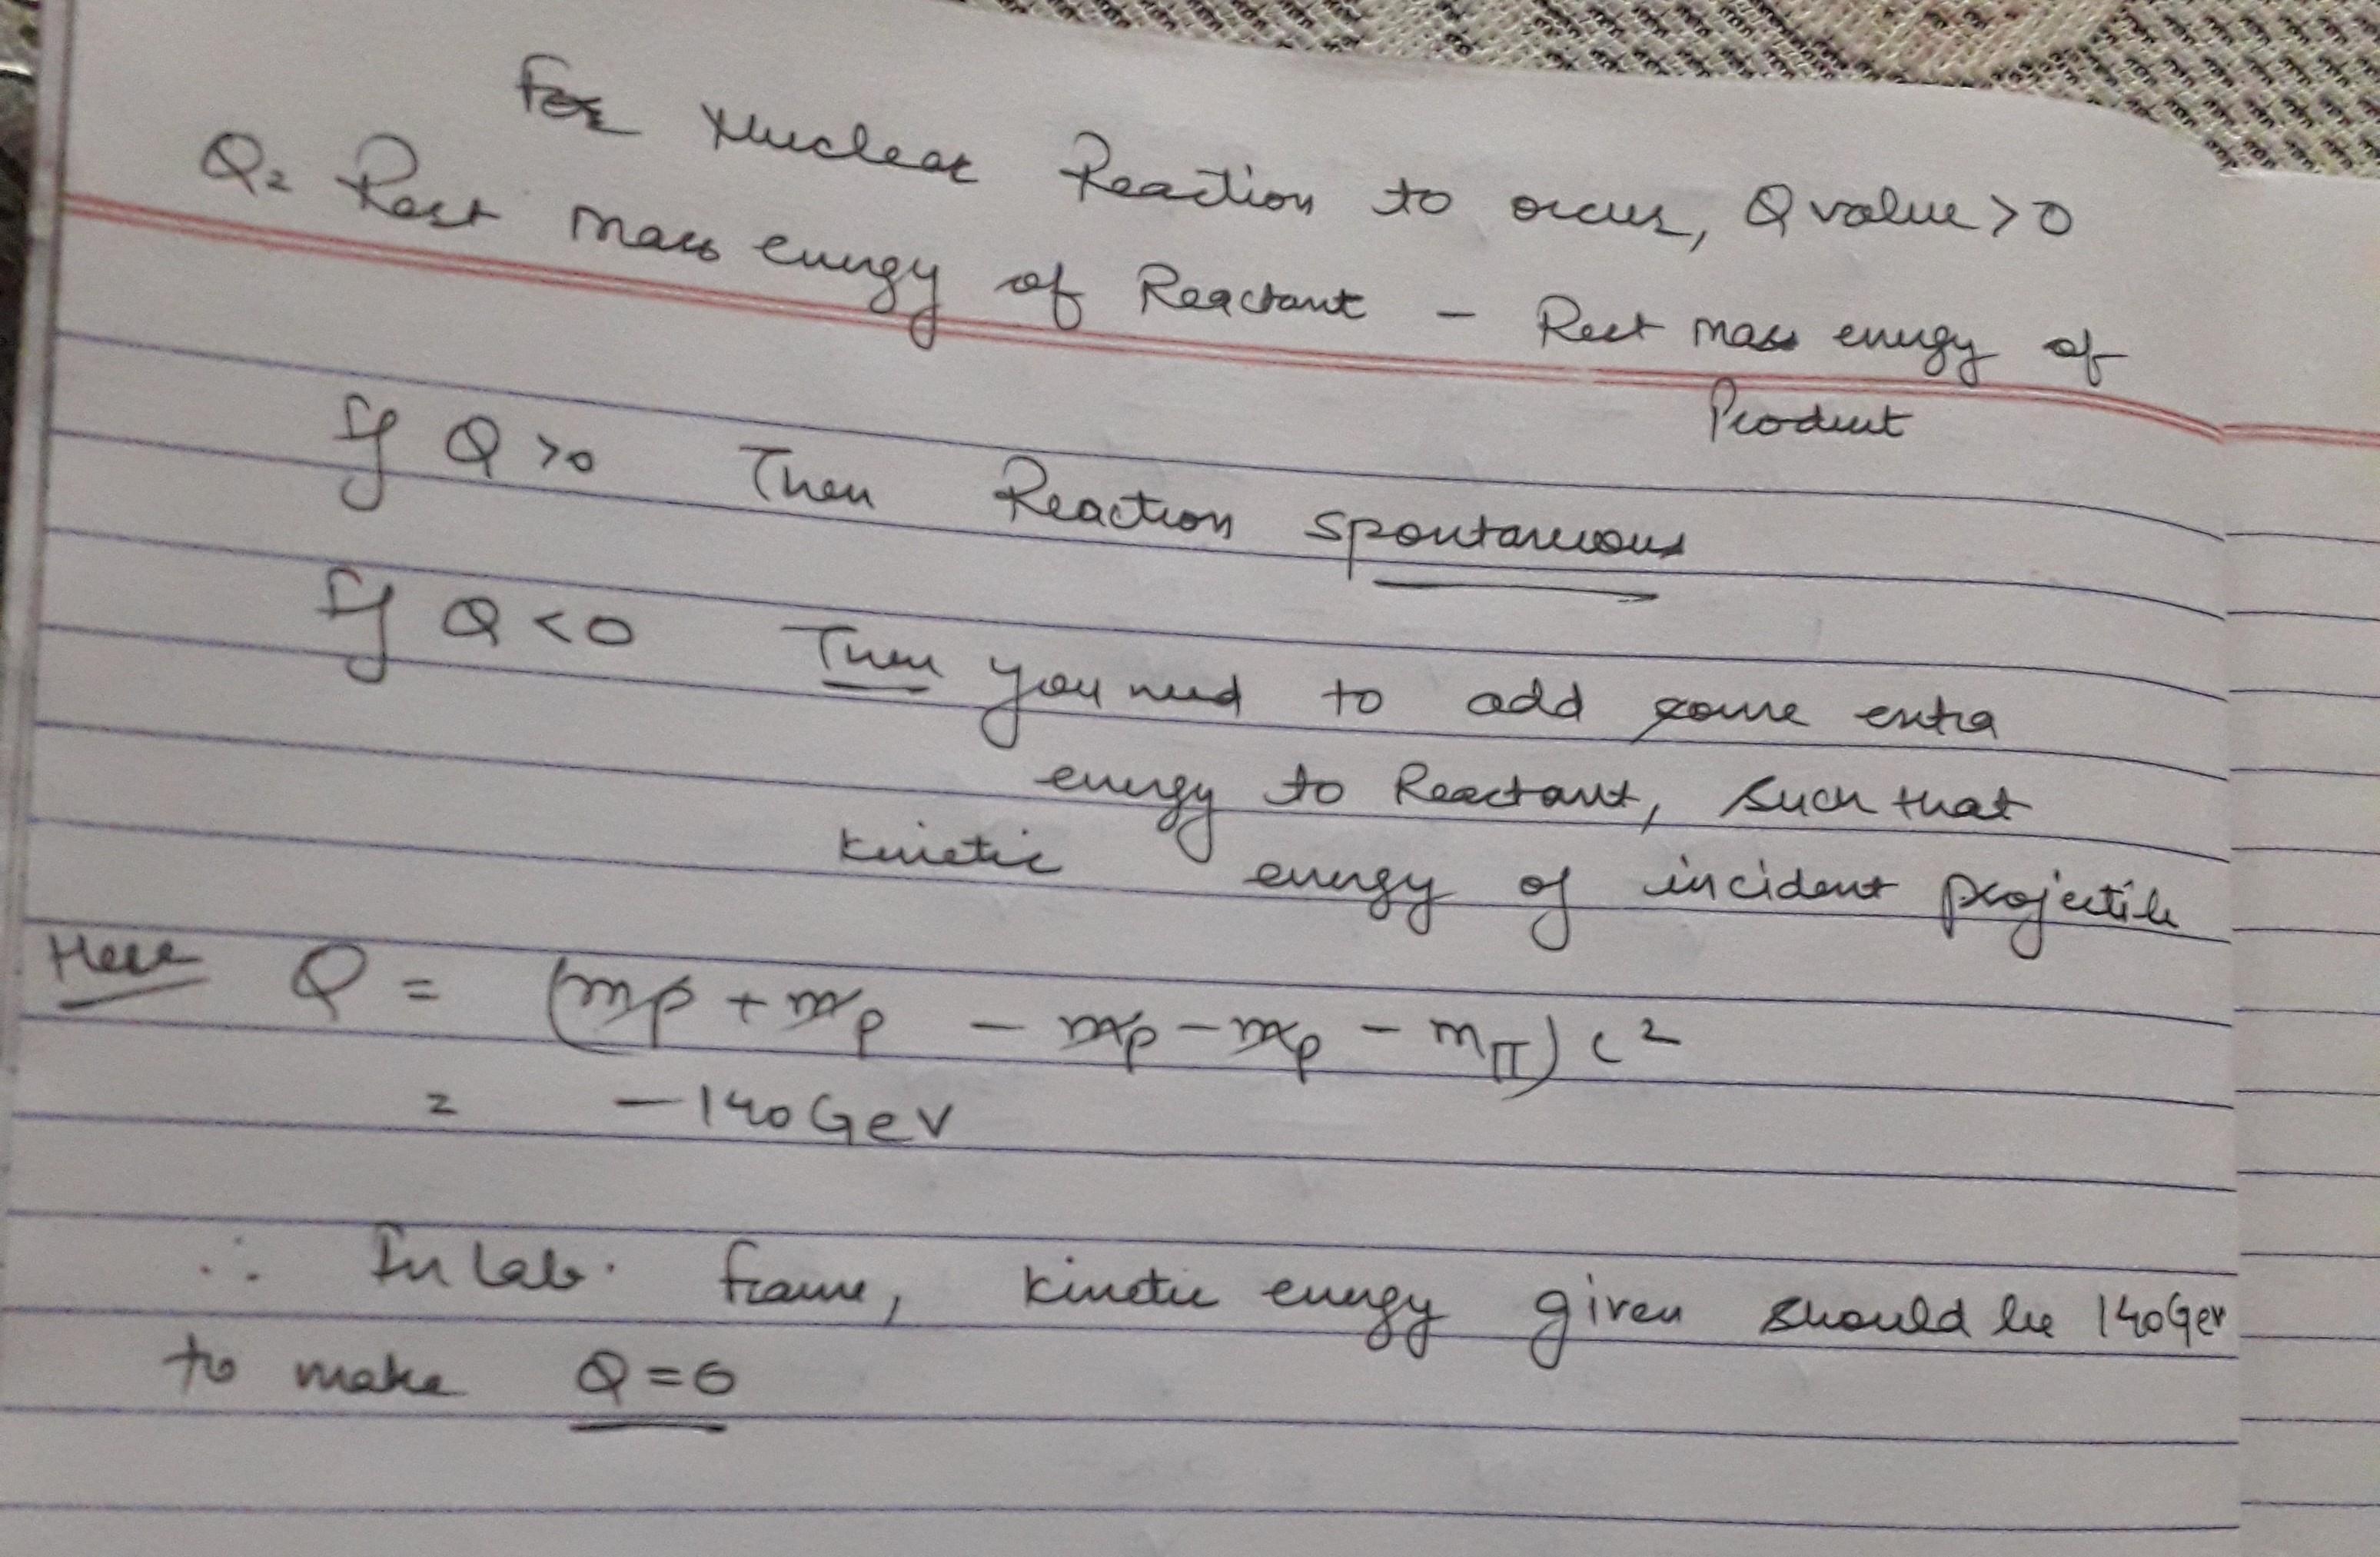 For Nuclear Reaction to occur, Q value > 0
Q = Rest mass energy of Reactant - Rest mass energy of
Product
If Q > 0 Then Reaction spontaneous
If Q < 0 Then you need to add some extra
energy to Reactant, such that
kinetic energy of incident projectile
Here Q = (mp + mp - mp - mp - mπ) c²
= - 140 GeV
∴ In Lab. frame, kinetic energy given should be 140 GeV
to make Q = 0